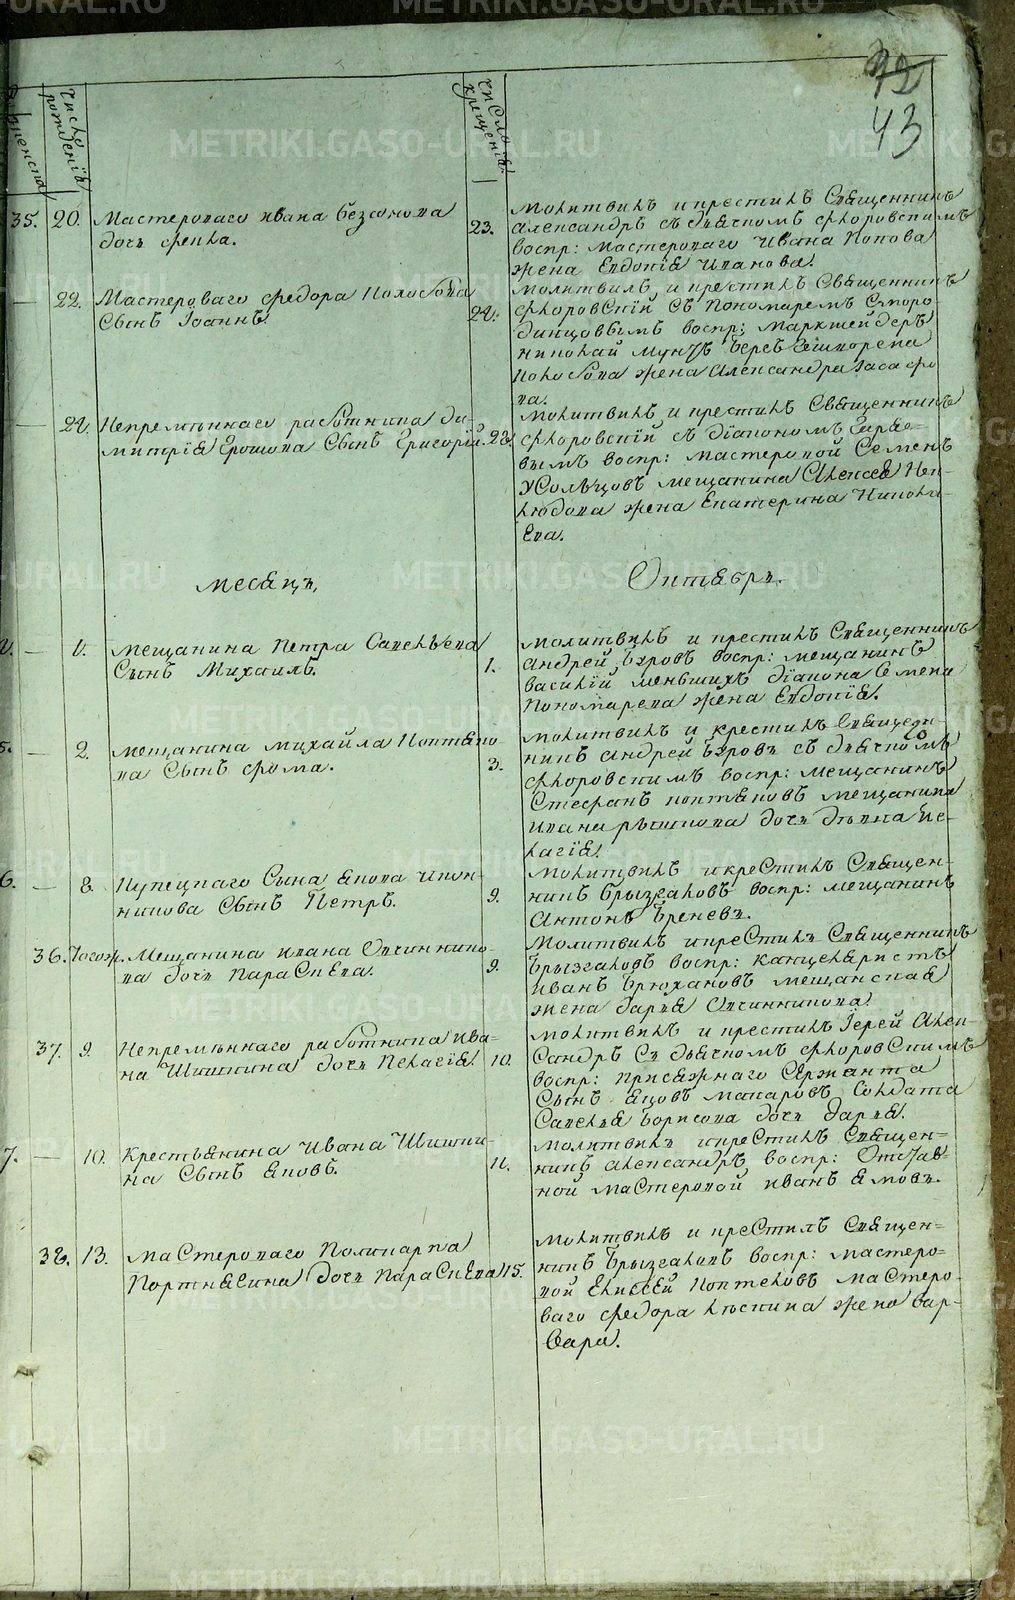 42
43
Число рожденія
женска
Число крещенія
35. 20. Мастероваго ивана безсонова
дочь фекла.
23.
Молитвилъ и крестилъ Священникъ
александръ съ дьячкомъ флоровскимъ
воспр: мастероваго ивана попова
жена Евдокія иванова.
— 22. Мастероваго федора Колосова
Сынъ Іоаннъ.
24.
молитвилъ и крестилъ Священникъ
флоровскій съ Пономаремъ Сморо-
динцовымъ воспр: маркшейдеръ
николай
Колосова жена александра
ва.
— 24. Непремѣннаго работника ди-
митрія Ерошова Сынъ Григорій.
молитвилъ и крестилъ Священникъ
флоровскій съ діакономъ
вымъ воспр: мастеровой Семенъ
Усольцовъ мещанина алексея Нек-
людова жена Екатерина Никола-
ева.
месяцъ,
Октябрь.
— 1. мещанина петра Савельева
Сынъ Михаилъ.
1.
молитвилъ и крестилъ Священникъ
андрей воспр: мещанинъ
василій меньшихъ діакона Семена
пономарева жена Евдокія.
— 2. мещанина михайла Коптяко-
ва Сынъ фома.
3.
молитвилъ и крестилъ Священ-
никъ андрей съ дьячкомъ
флоровскимъ воспр: мещанинъ
Стефанъ коптяковъ мещанина
ивана дочь девка Пе-
лагія.
6. — 8. Купецкаго Сына якова икон-
никова Сынъ Петръ.
9.
молитвилъ и крестилъ Священ-
никъ Брызгаловъ воспр: мещанинъ
антонъ Бреневъ.
36. Тогож. Мещанина ивана Овчиннико-
ва дочь параскева.
9.
Молитвилъ и крестилъ Священникъ
Брызгаловъ воспр: канцеляристъ
иванъ Брюхановъ мещанская
жена дарья Овчинникова.
37. 9. Непремѣннаго работника ива-
на Шишкина дочь Пелагія.
10.
молитвилъ и крестилъ Іерей алек-
сандръ съ дьячкомъ флоровскимъ
воспр: присяжнаго Сержанта
Сынъ яковъ макаровъ Солдата
Савелья борисова дочь дарья.
7. — 10. Крестьянина ивана Шишки-
на Сынъ яковъ.
11.
молитвилъ и крестилъ Священ-
никъ александръ воспр: Отстав-
ной мастеровой иванъ
38. 13. мастероваго Поликарпа
Портнягина дочь параскева
15.
молитвилъ и крестилъ Священ-
никъ Брызгаловъ воспр: мастеро-
вой Елисей Коптеловъ мастеро-
ваго федора жена вар-
вара.